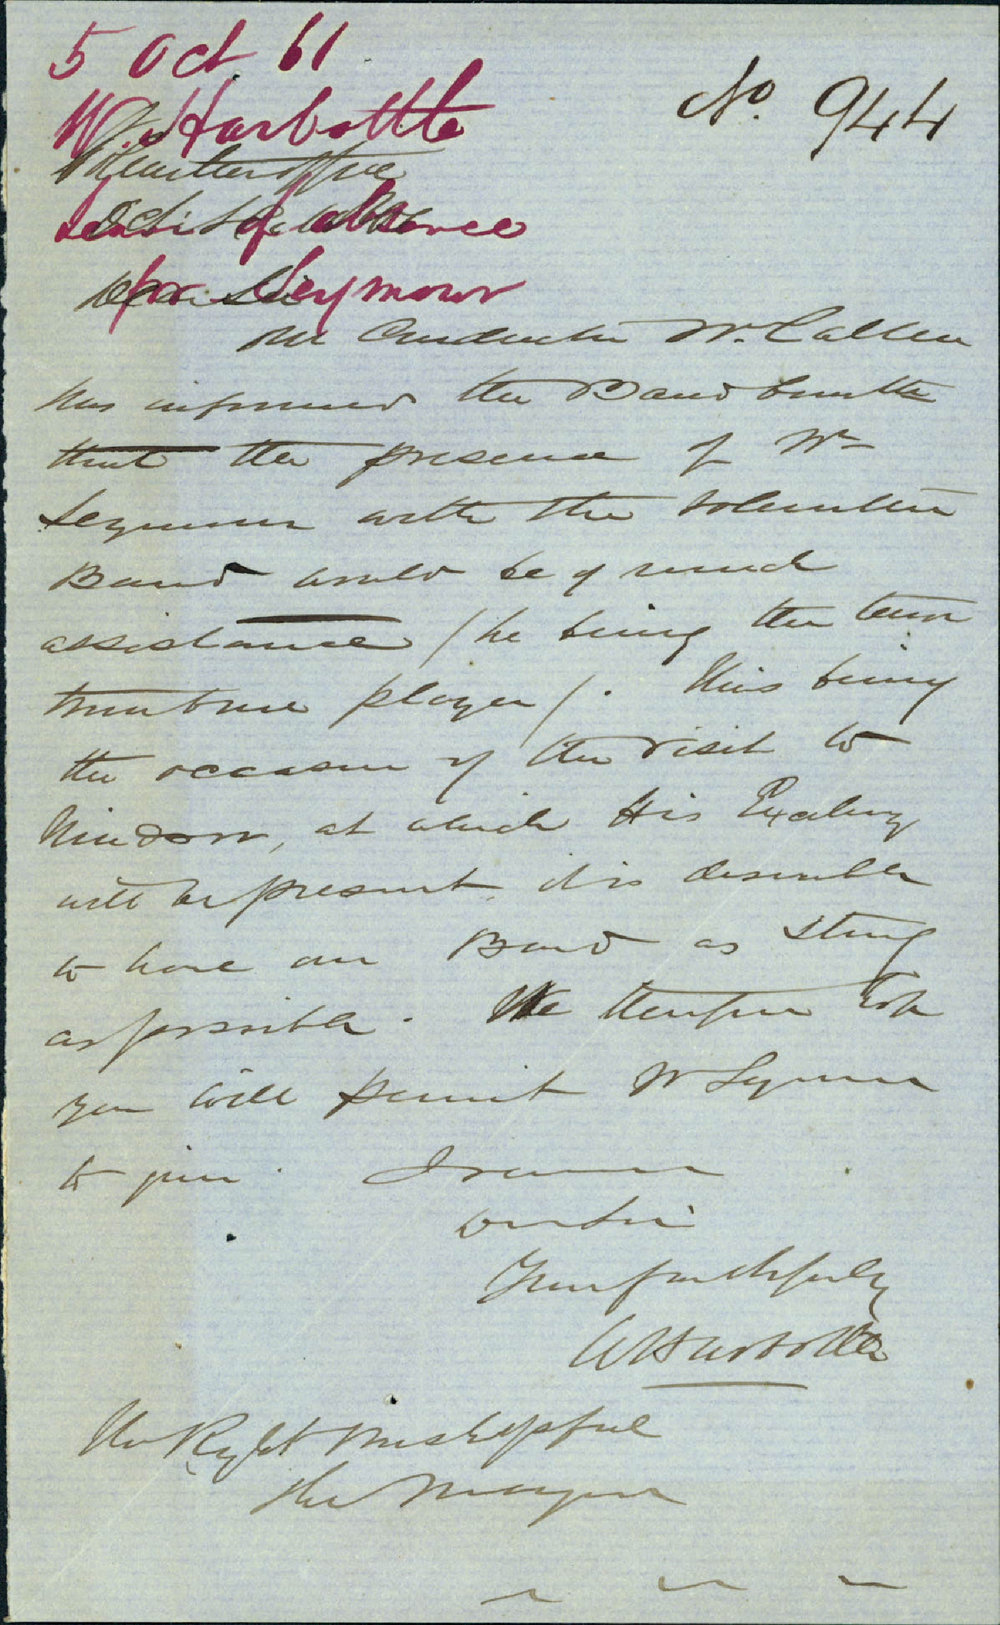 5 Oct 61
W. Harbottle
leave of absence
for Seymour
No. 944
Volunteer Office
Dear Sir
The Conductor Mr. Callen
has informed the Band Comttee
that the presence of Mr
Seymour with the Volunteer
Band would be of much
assistance (he being the tenor
trombone player). This being
the occasion of the visit to
Windsor, at which His Excellency
will be present, it is desirable
to have our Band as strong
as possible. We therefore hope
you will permit Mr Seymour
to join. I remain
Dear Sir
Yours faithfully
W Harbottle
The Right Worshipful
The Mayor